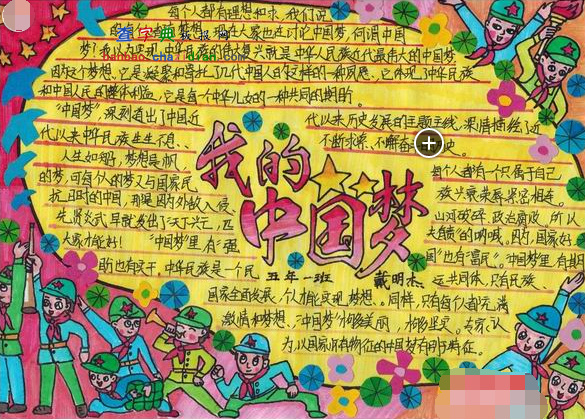 每个人都有理想和追求,我们说
的每个人都有梦想。现在大家也在讨论中国梦,何谓中国
查字典手抄报网
梦?我以为实现中华民族的伟大复兴就是中华人民族近代最伟大的中国梦
因为这个梦想,它是凝聚和寄托了几代中国人的这样的一种夙愿,它体现了中华民族
和中国人民的整体利益,它是每一个中华儿女的一种共同的期盼。
"中国梦"深刻道出了中国近
代以来历史发展的主题主线,深情描绘了近
代以来中华民族生生不息、
不断求索、不懈奋
史。
人生如船,梦想是帆
每个人都有一个只属于自己
的梦,可每个人的梦又与国家民
族兴衰荣辱紧密相连。
抗日时的中国,那是因为外敌入侵、
山河破碎,政治腐败,所以
先贤
早就发出了"天下兴亡,匹
夫有责"的呐喊。因为,国家好
大家才能好!"中国梦"里有"强
国"也有"富民"。"中国梦"里,有期
盼也有实干,中华民族是一个民
运共同体,只有民族、
我的
中国梦
五年一班
戴明杰
国家全面发展,个人才能实现梦想。同样,只有每个人都充满
激情和梦想,"中国梦"才够美丽,才够坚
为,以国家
特征的中国梦有
特征。